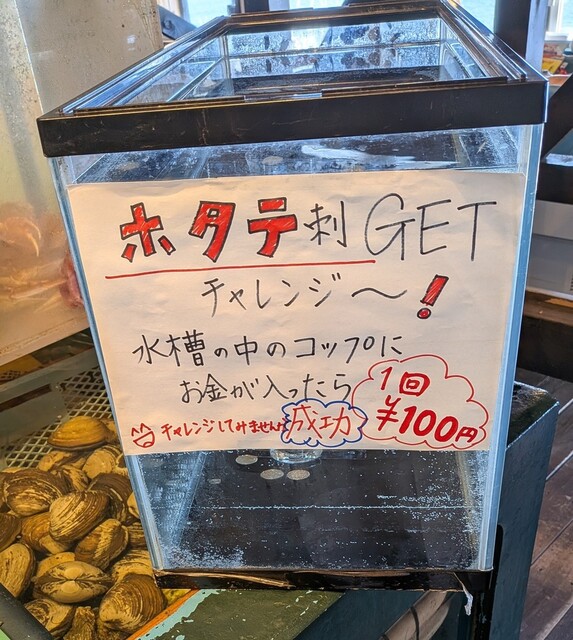 ホタテ刺GET
チャレンジ〜!
水槽の中のコップに
お金が入ったら
1回
¥100円
チャレンジしてみませんか
成功